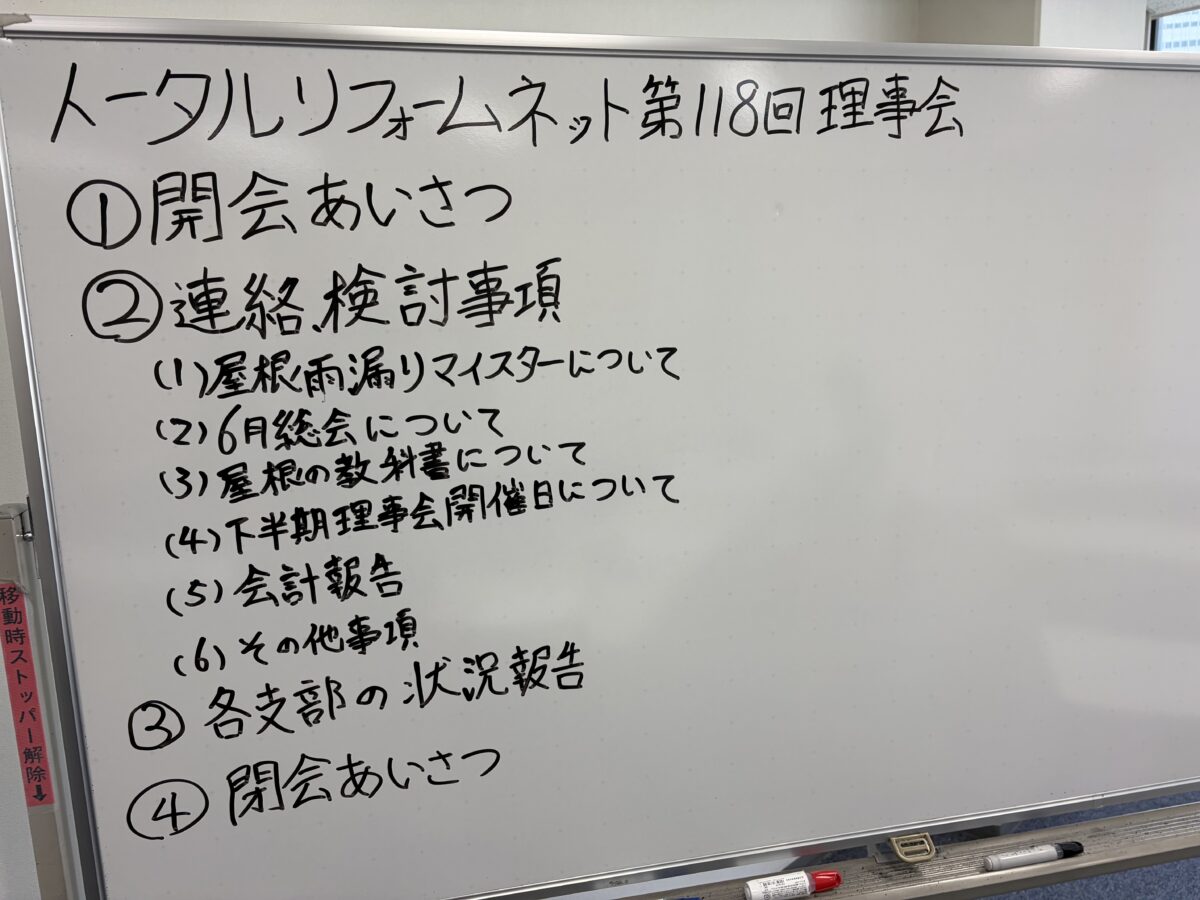 トータルリフォームネット第118回理事会
①開会あいさつ
②連絡、検討事項
(1)屋根雨漏りマイスターについて
(2)6月総会について
(3)屋根の教科書について
(4)下半期理事会開催日について
(5)会計報告
(6)その他事項
③各支部の状況報告
④閉会あいさつ
移動時ストッパー解除↓